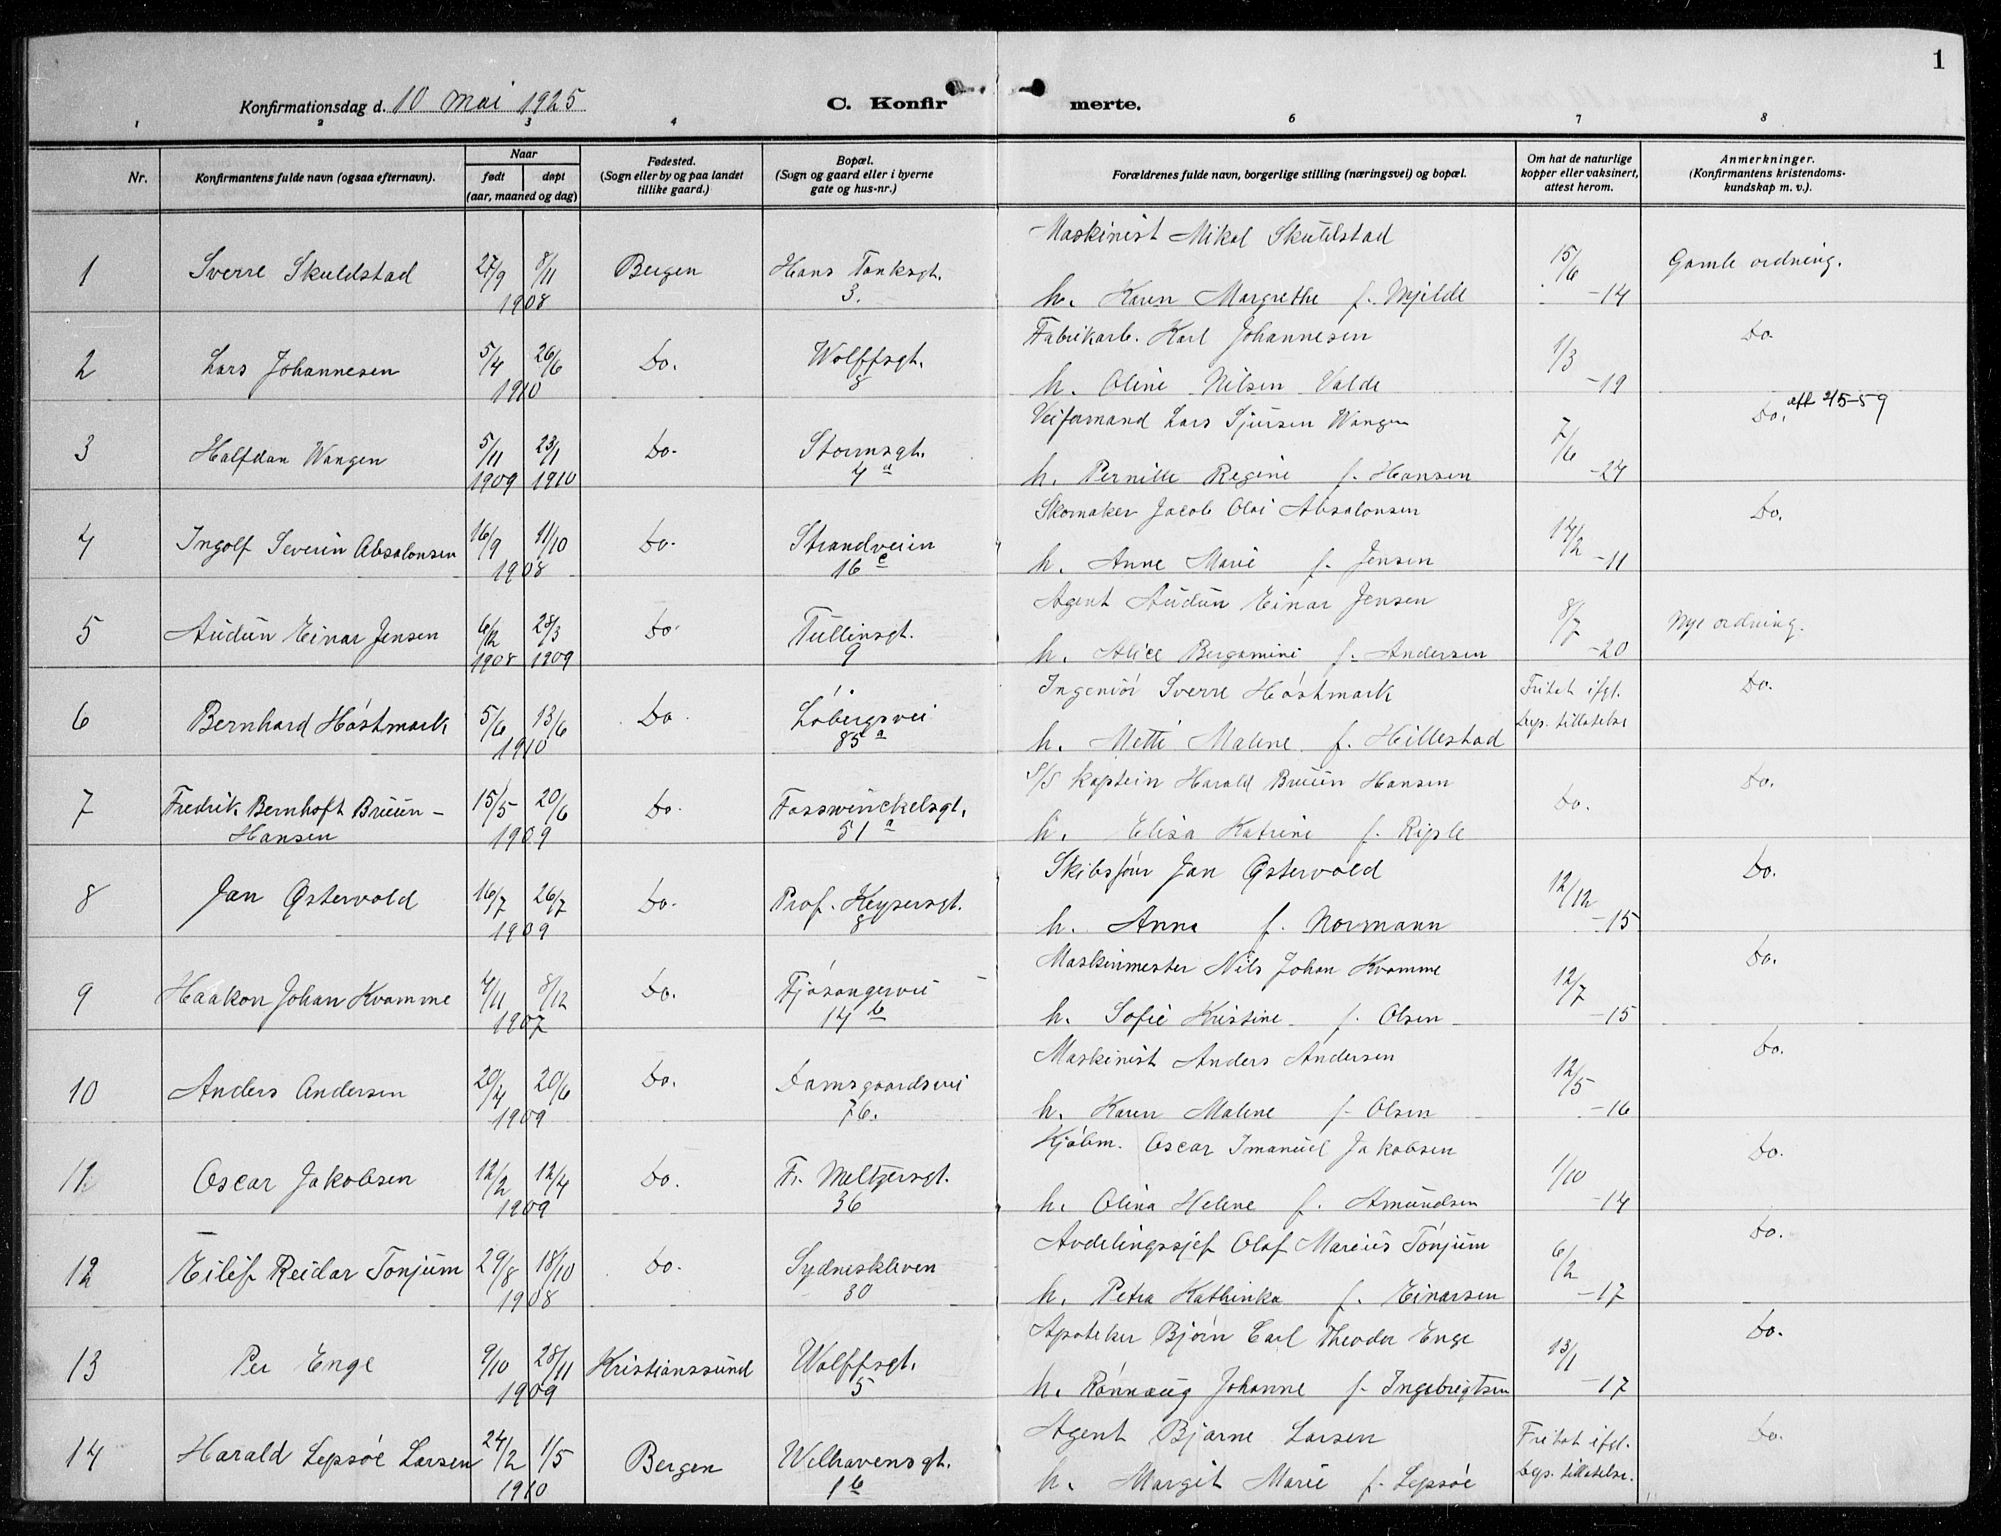 1
Konfirmationsdag d. 10 mai 1925 C. Konfirmerte.
1 2 3 4 5 6 7 8
Nr. Konfirmantens fulde navn (ogsaa efternavn). Naar født døpt (aar, maaned og dag) Fødested. (Sogn eller by og paa landet tillike gaard.) Bopæl. (Sogn og gaard eller i byerne gate og hus-nr.) Forældrenes fulde navn, borgerlige stilling (næringsvei) og bopæl. Om hat de naturlige kopper eller vaksinert, attest herom. Anmerkninger. (Konfirmantens kristendomskundskap m. v.).
1 Sverre Skuldstad 27/9 8/11 1908 Bergen Hans Tanksgt. 3. Maskinist Mikal Skuldstad 15/6 -14 Gamle ordning.
h. Karen Margrethe f. Mjelde
2 Lars Johannesen 5/4 26/6 1910 Do. Wolffsgt. 8 Fabrikarb. Karl Johannesen 1/3 -19 Do.
h. Oline Nilsen Valde
3 Halfdan Wangen 5/11 1909 23/1 1910 Do. Stormsgt. 4a Veiformand Lars Sjursen Wangen 7/6 -24 Do. att 2/5-59
h. Pernille Regine f. Hansen
4 Ingolf Severin Absalonsen 16/9 11/10 1908 Do. Strandveien 16c Skomaker Jacob Olai Absalonsen 17/2 -11 Do.
h. Anne Marie f. Jensen
5 Audun Einar Jensen 6/12 1908 28/3 1909 Do. Tullinsgt. 9 Agent Audun Einar Jensen 8/7 -20 Nye ordning.
h. Alice Bergamini f. Andersen
6 Bernhard Høstmark 5/6 13/6 1910 Do. Løbergsvei 85a Ingeniør Sverre Høstmark Fritat ifgl. Do.
h. Mette Malene f. Hillestad legs. tillatelse
7 Fredrik Bernhoft Bruun-Hansen 15/5 20/6 1909 Do. Fosswinckelsgt. 51a S/S kaptein Harald Bruun Hansen Do. Do.
h. Elisa Katrine f. Riple
8 Jan Østervold 16/7 26/7 1909 Do. Prof. Keysersgt. 8 Skibsfører Jan Østervold 12/12 -15 Do.
h. Anna f. Normann
9 Haakon Johan Kvamme 4/11 8/12 1907 Do. Fjøsangervei 14b Maskinmester Nils Johan Kvamme 12/7 -15 Do.
h. Sofie Kristine f. Olsen
10 Anders Andersen 20/4 20/6 1909 Do. Damsgaardsvei 76. Maskinist Anders Andersen 12/5 -16 Do.
h. Karen Malene f. Olsen
11 Oscar Jakobsen 12/2 12/4 1909 Do. Fr. Meltzersgt. 36 Kjøbm. Oscar Imanuel Jakobsen 1/10 -14 Do.
h. Olina Helene f. Amundsen
12 Eilif Reidar Tønjum 29/8 18/10 1908 Do. Sydneskleven 30 Avdelingssjef Olaf Marius Tønjum 6/2 -17 Do.
h. Petra Kathinka f. Einarsen
13 Per Enge 9/10 28/11 1909 Kristianssund Wolffsgt. 5 Apoteker Bjørn Carl Theodor Enge 13/1 -17 Do.
h. Rønnaug Johanne f. Ingebrigtsen
14 Harald Lepsøe Larsen 24/2 1/5 1910 Bergen Welhavensgt. 1b Agent Bjarne Larsen Fritat ifgl. Do.
h. Margit Marie f. Lepsøe legs. tillatelse.